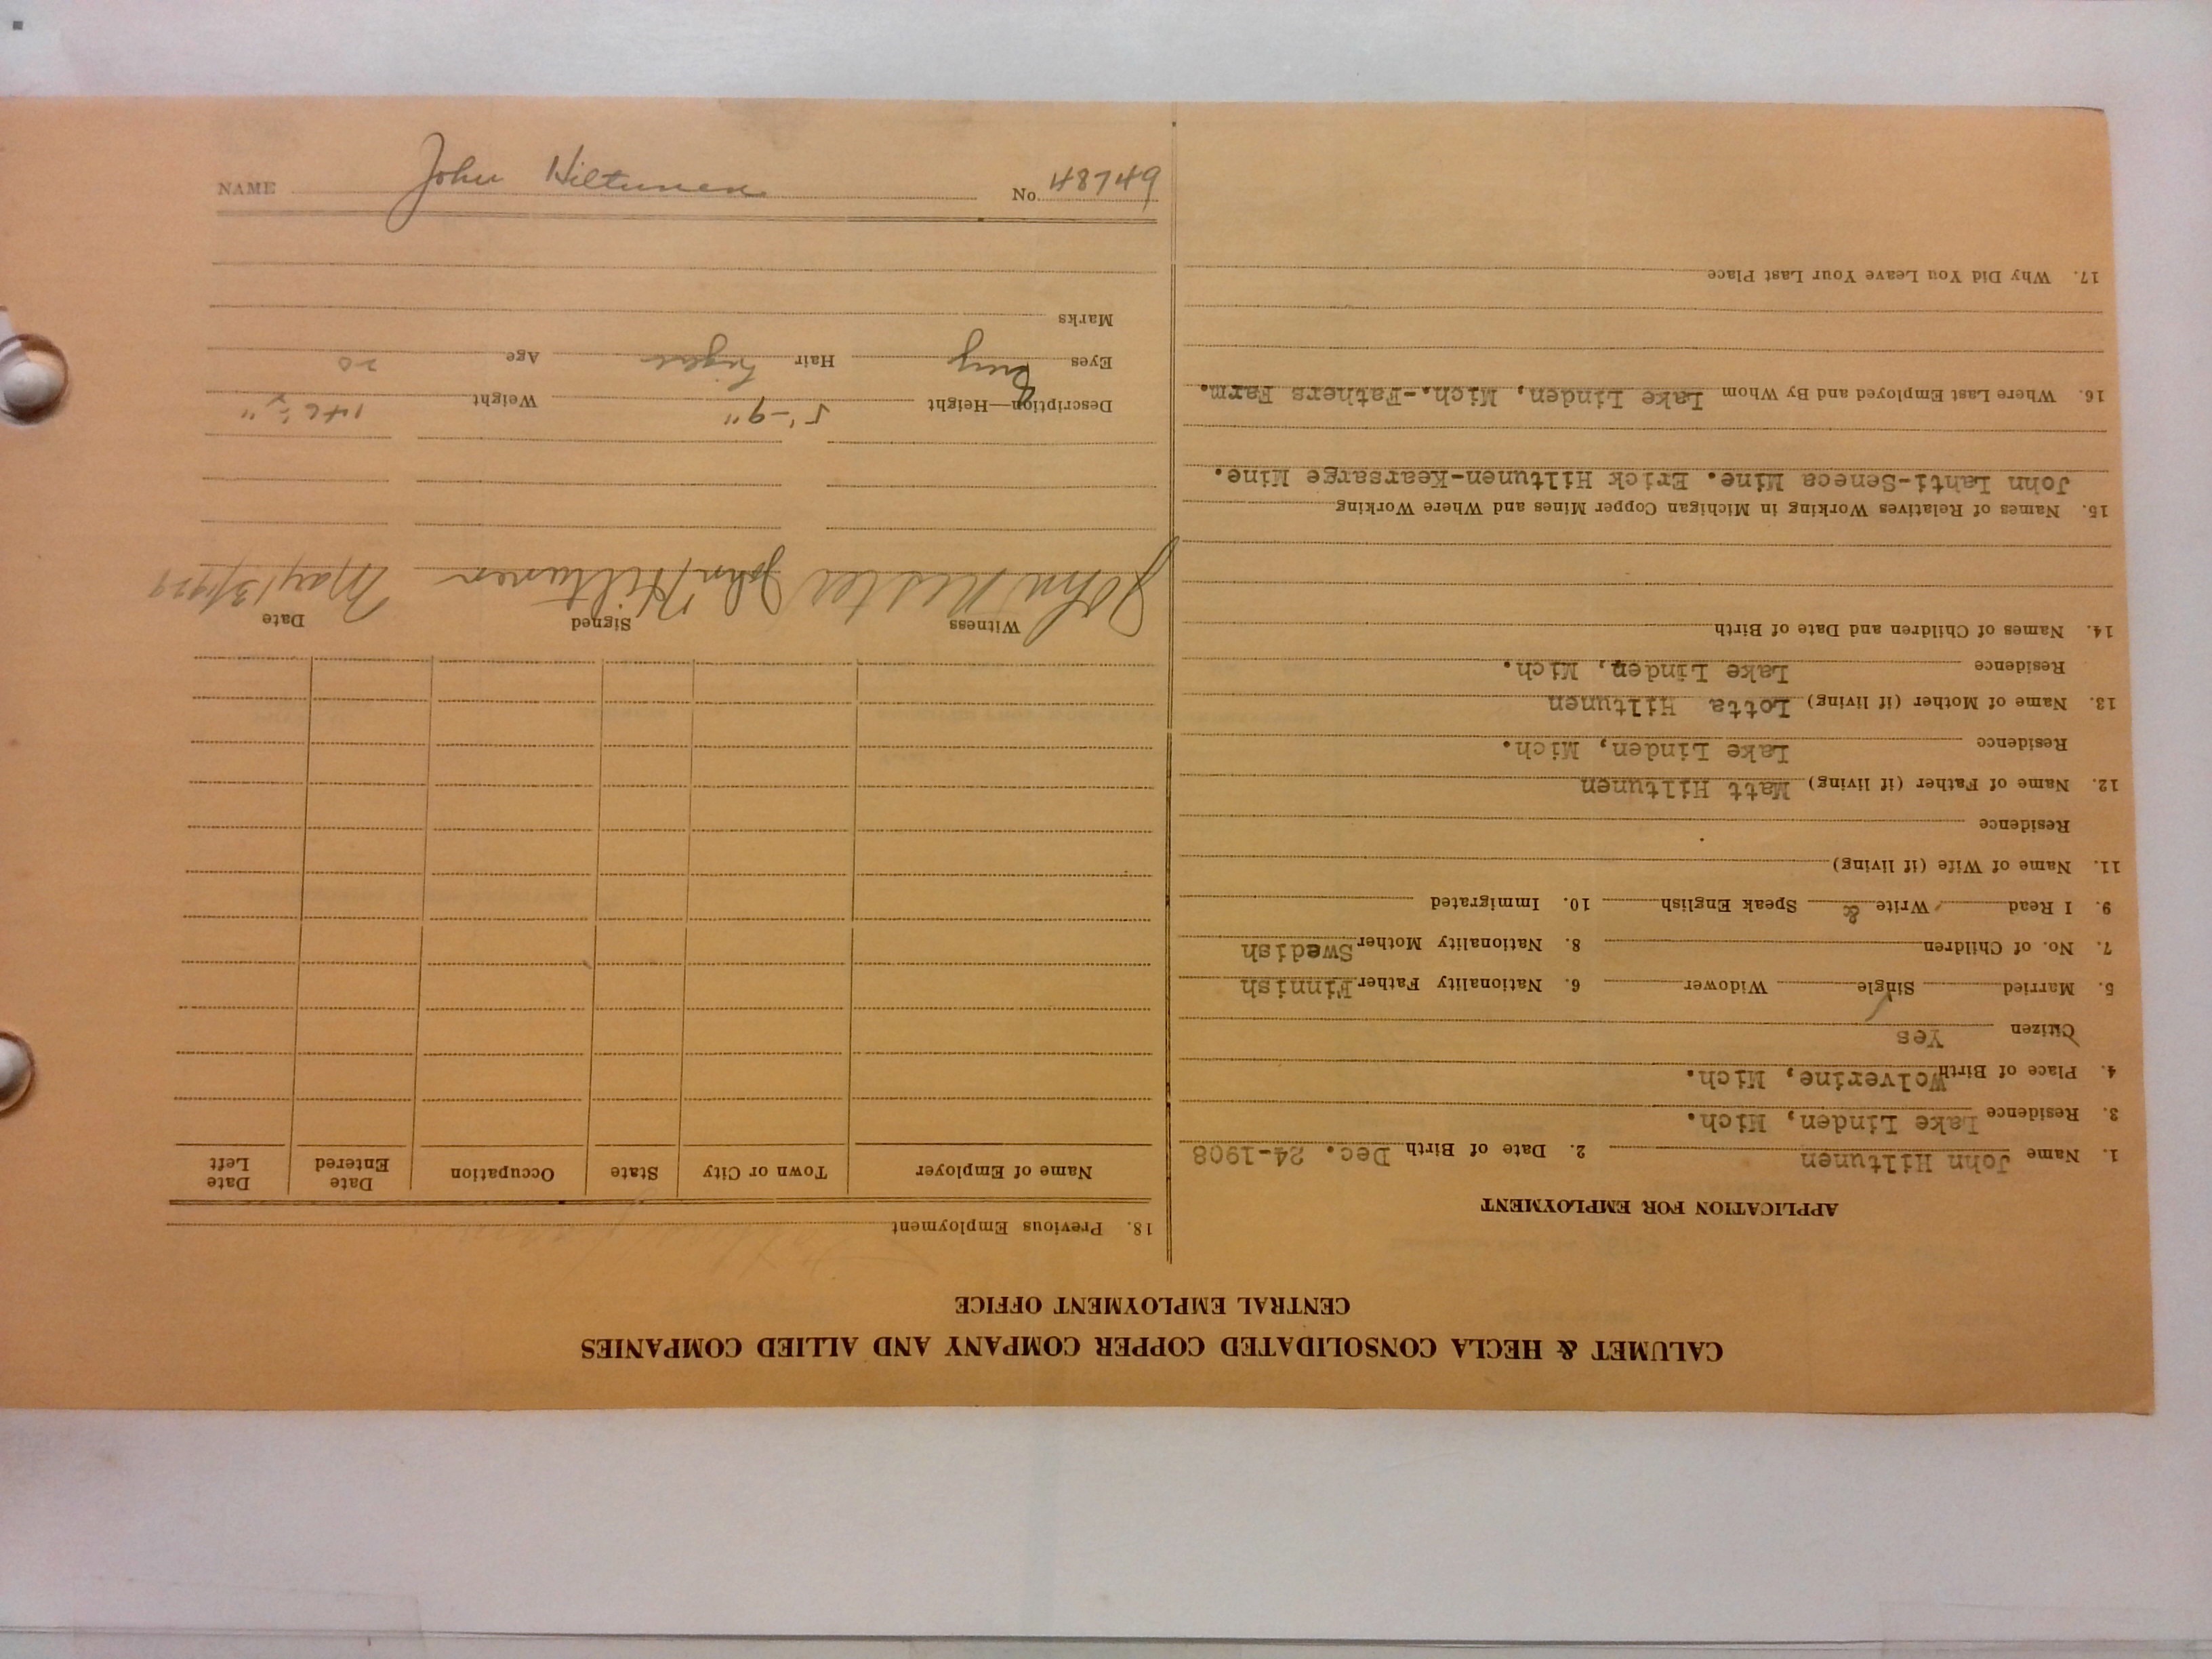 CALUMET & HECLA CONSOLIDATED COPPER COMPANY AND ALLIED COMPANIES
CENTRAL EMPLOYMENT OFFICE
APPLICATION FOR EMPLOYMENT
1. Name John Hiltunen 2. Date of Birth Dec. 24-1908
3. Residence Lake Linden, Mich.
4. Place of Birth Wolverine, Mich.
Citizen Yes
5. Married Single Widower 6. Nationality Father Finnish
7. No. of Children 8. Nationality Mother Swedish
9. I Read Write & Speak English 10. Immigrated
11. Name of Wife (if living)
Residence
12. Name of Father (if living) Matt Hiltunen
Residence Lake Linden, Mich.
13. Name of Mother (if living) Lotta Hiltunen
Residence Lake Linden, Mich.
14. Names of Children and Date of Birth
15. Names of Relatives Working in Michigan Copper Mines and Where Working
John Lahti-Seneca Mine. Erick Hiltunen-Kearsarge Mine.
16. Where Last Employed and By Whom Lake Linden, Mich.-Fathers Farm.
17. Why Did You Leave Your Last Place
18. Previous Employment
Name of Employer Town or City State Occupation Date Entered Date Left
Witness Signed Date
John Nester John Hiltunen May 13/1929
Description—Height 5'-9" Weight
Eyes Grey Hair Age 20
Marks
NAME John Hiltunen No. 48749